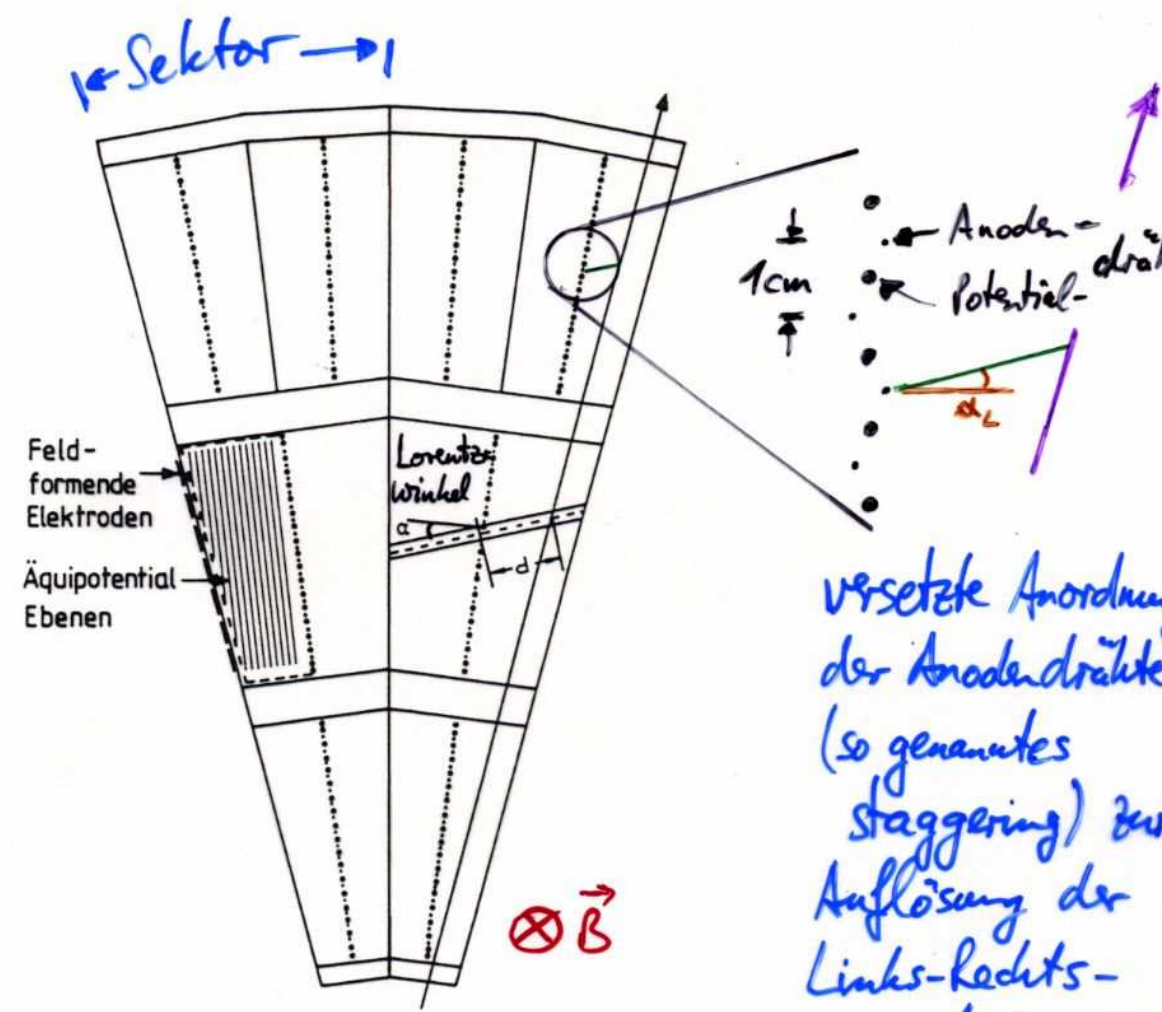 Sektor
Anoden-
Potential-
1cm
α_L
Feld-
formende
Elektroden
Äquipotential
Ebenen
Lorentz-
winkel
α
d
B
versetzte Anordnung
der Anodendrähte
(so genanntes
staggering) zur
Auflösung der
Links-Rechts-